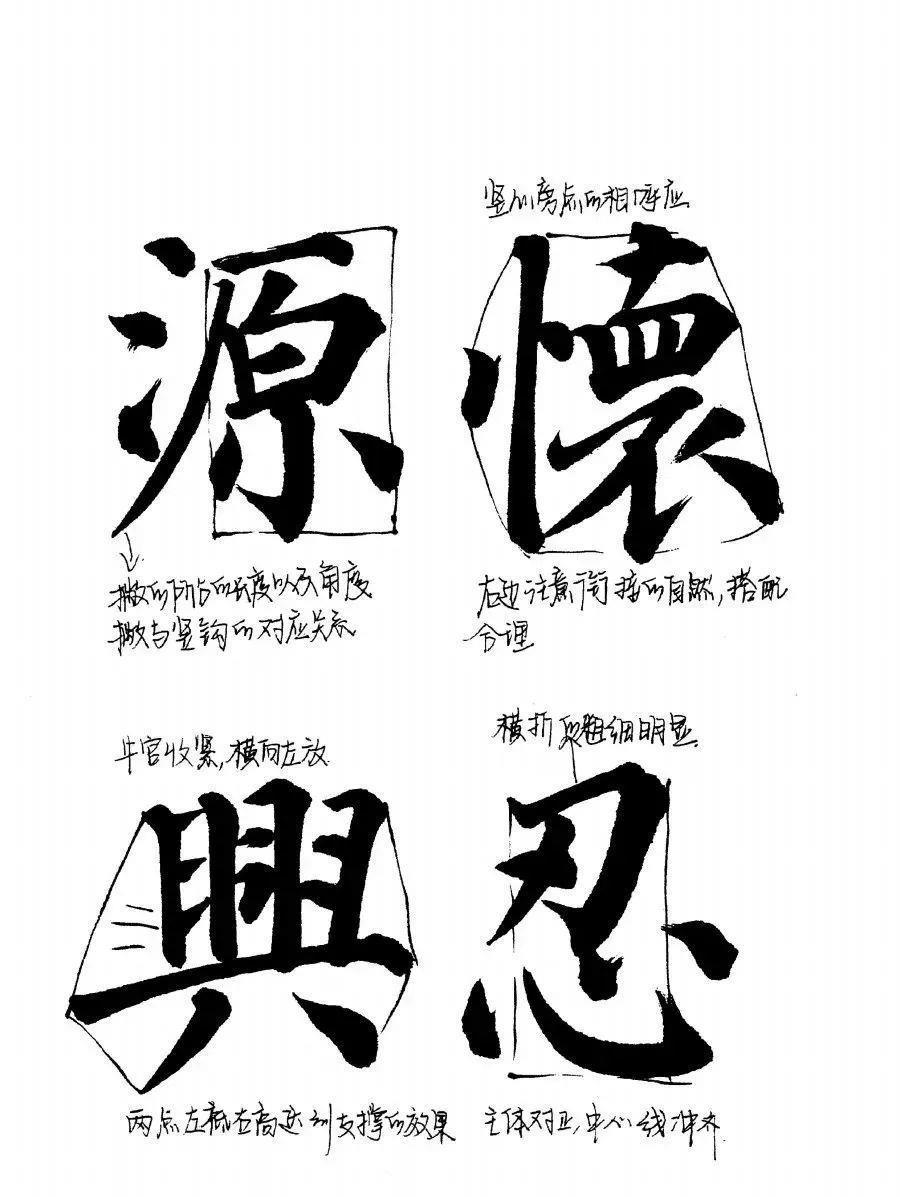 竖心旁点的相呼应
源
懷
撇的阶白的长度以及角度
撇与竖钩的对应关系
右边注意衔接的自然,搭配
合理
中宫收紧,横向左放
横折 粗细明显
興
忍
两点左低右高达到支撑的效果
主体对正,中心线冲齐